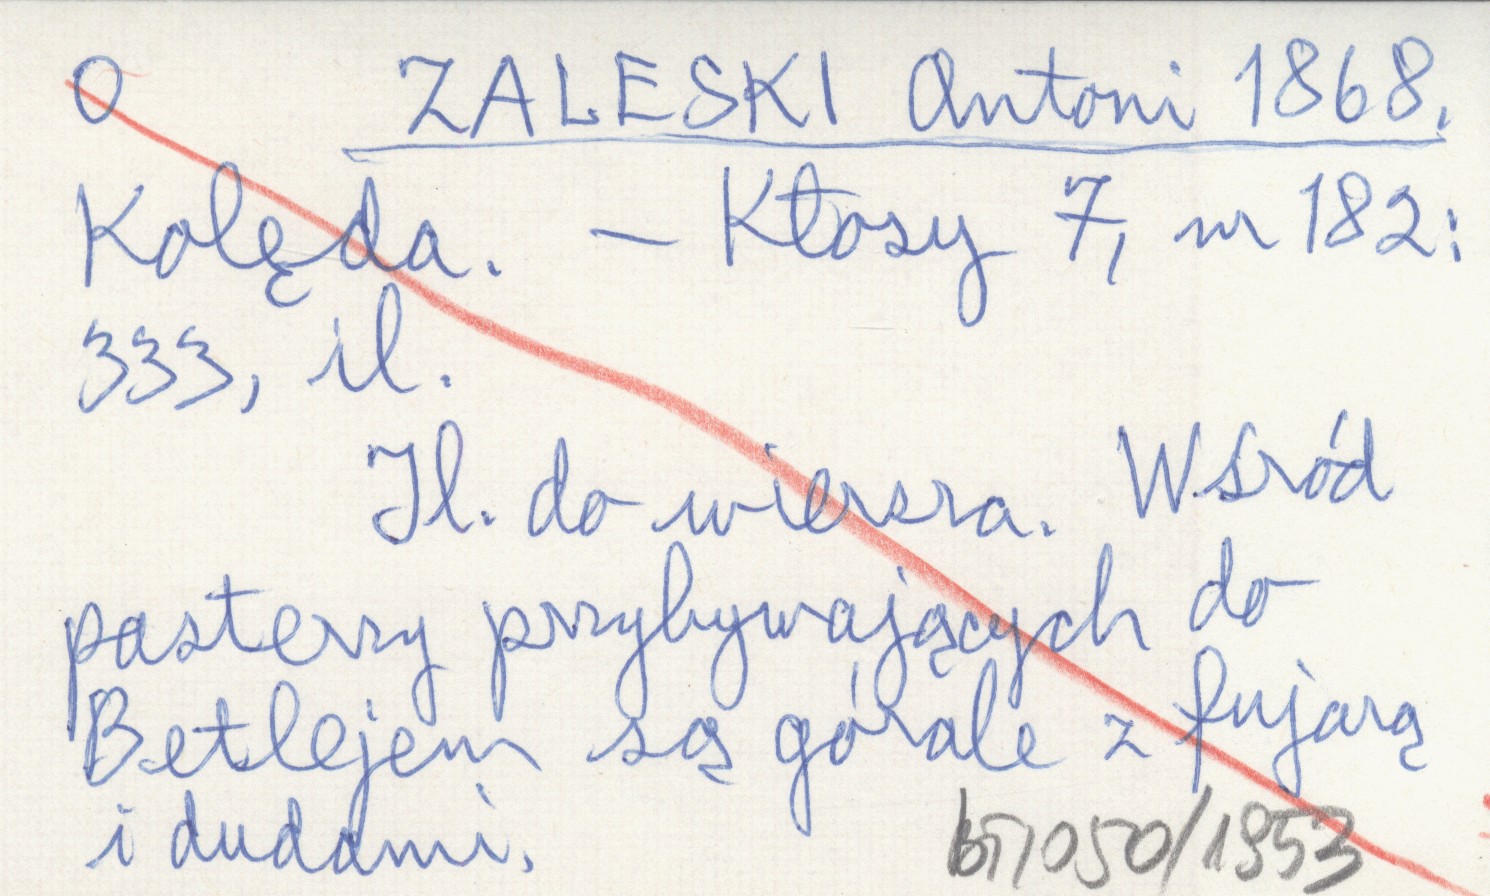 O ZALESKI Antoni 1868.
Kolęda. – Kłosy 7, nr 182:
333, il.
Il. do wiersza. Wśród
pasterzy przybywających do
Betlejem są górale z fujarą
i dudami.